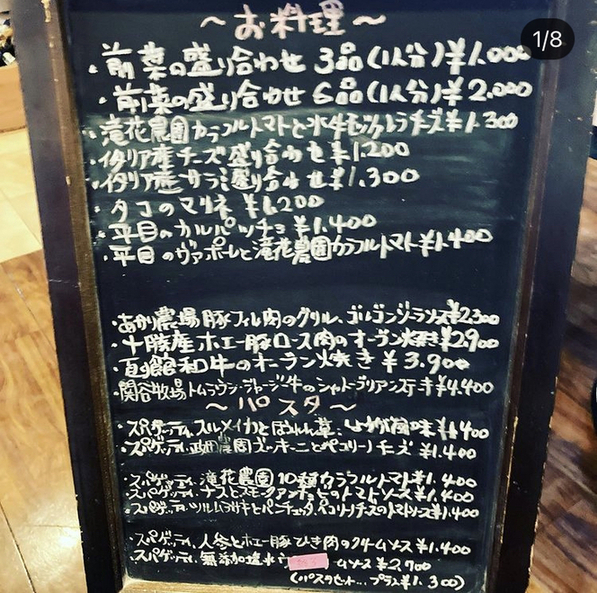 1/8
〜お料理〜
・前菜の盛り合わせ 3品(1人分)¥1.000
・前菜の盛り合わせ 6品(1人分)¥2.000
・滝花農園カラフルトマトと水牛モッツァレラチーズ¥1.300
・イタリア産チーズ盛り合わせ¥1.200
・イタリア産サラミ盛り合わせ¥1.300
・タコのマリネ ¥1.200
・平目のカルパッチョ ¥1.400
・平目のヴァポーレと滝花農園カラフルトマト¥1.400
・あかり農場豚フィレ肉のグリル、ゴルゴンゾーラソース¥2.300
・十勝産ホエー豚ロース肉のオーブン焼き¥2.900
・函館和牛のオーブン焼き ¥3.900
・関谷牧場トムラウシ・ジャージー牛のシャトーブリアンステーキ¥4.400
〜パスタ〜
・スパゲッティ、スルメイカとほうれん草、しょうが風味¥1.400
・スパゲッティ、農園ズッキーニとペコリーノチーズ ¥1.400
・スパゲッティ、滝花農園10種カラフルトマト¥1.400
・スパゲッティ、ナスとスモークアンチョビのトマトソース¥1.400
・スパゲッティ、ツルムラサキとパンチェッタ、ペコリーノチーズのトマトソース¥1.400
・スパゲッティ、人参とホエー豚ひき肉のクリームソース¥1.400
・スパゲッティ、無添加塩水ウ ームソース¥2.700
(パスタセット…プラス¥1.300)